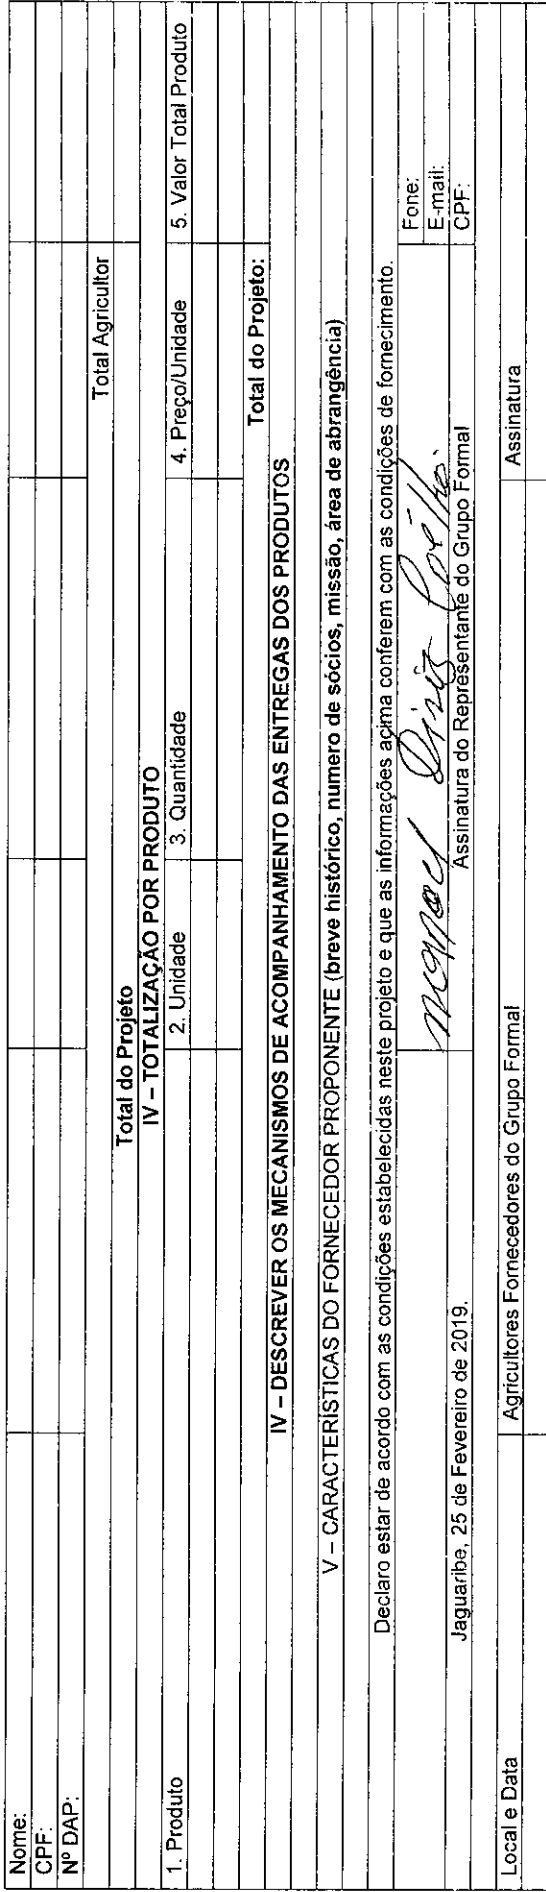 Nome:
CPF:
Nº DAP:
Total Agricultor
Total do Projeto
IV – TOTALIZAÇÃO POR PRODUTO
1. Produto 2. Unidade 3. Quantidade 4. Preço/Unidade 5. Valor Total Produto
Total do Projeto:
IV – DESCREVER OS MECANISMOS DE ACOMPANHAMENTO DAS ENTREGAS DOS PRODUTOS
V – CARACTERÍSTICAS DO FORNECEDOR PROPONENTE (breve histórico, numero de sócios, missão, área de abrangência)
Declaro estar de acordo com as condições estabelecidas neste projeto e que as informações acima conferem com as condições de fornecimento.
Manoel Diniz Coêlho Fone:
E-mail:
Jaguaribe, 25 de Fevereiro de 2019. Assinatura do Representante do Grupo Formal CPF:
Local e Data Agricultores Fornecedores do Grupo Formal Assinatura